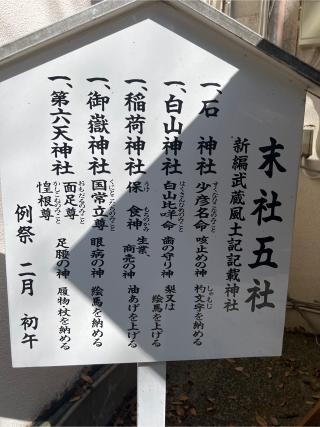 末社五社
新編武蔵風土記記載神社
一、石神社 少彦名命 咳止めの神 杓文字を納める
すくなひこなのみこと
しゃもじ
一、白山神社 白山比咩命 歯の守り神 梨又は
絵馬を上げる
一、稲荷神社 保食神 生業、
商売の神 油あげを上げる
一、御嶽神社 国常立尊 眼病の神 絵馬を納める
一、第六天神社 面足尊 足腰の神 履物杖を納める
惶根尊
例祭 二月 初午